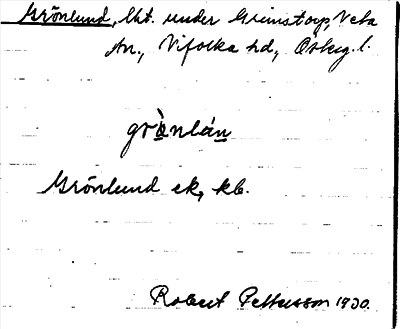 Grönlund, lht. under Grimstorp, Veta
sn., Vifolka hd, Östg. l.
grö̀nlán
Grönlund ek, kb.
Robert Pettersson 1930.